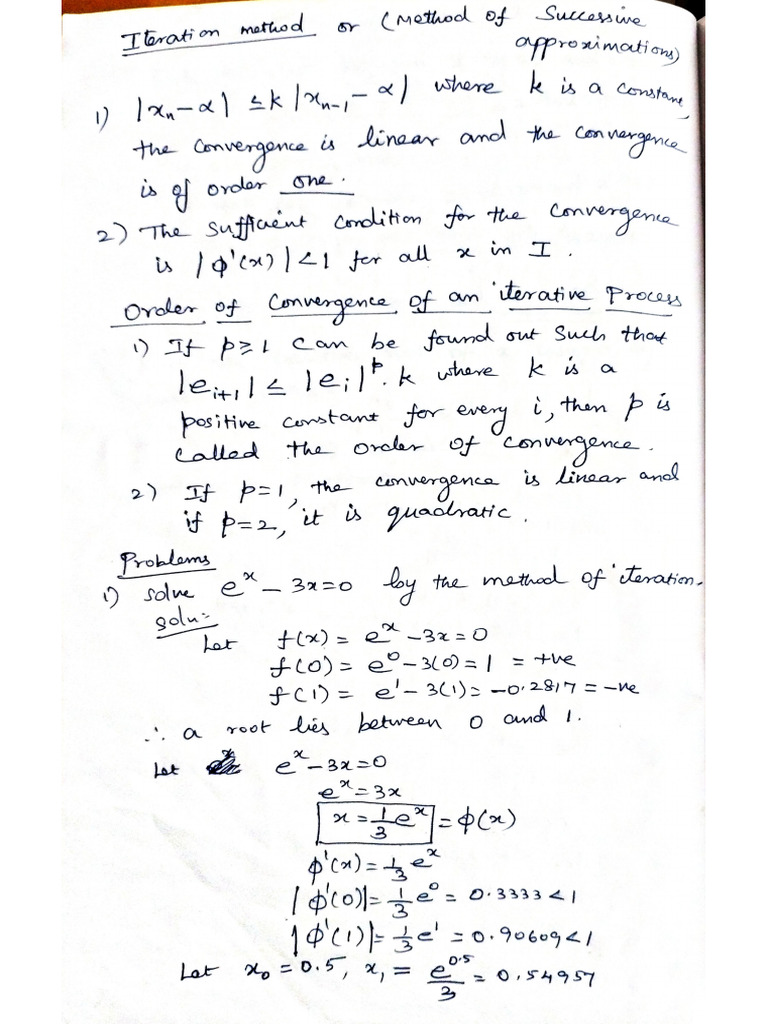 Iteration method or (Method of Successive
approximations)
1) |xₙ - α| ≤ k |xₙ₋₁ - α| where k is a constant,
the convergence is linear and the convergence
is of order one.
2) The sufficient condition for the convergence
is |ϕ'(x)| < 1 for all x in I.
Order of Convergence of an iterative Process
1) If p ≥ 1 can be found out such that
|eᵢ₊₁| ≤ |eᵢ|ᵖ. k where k is a
positive constant for every i, then p is
called the order of convergence.
2) If p=1, the convergence is linear and
if p=2, it is quadratic.
Problems
1) solve eˣ - 3x=0 by the method of iteration.
soln:
Let f(x) = eˣ - 3x = 0
f(0) = e⁰ - 3(0) = 1 = +ve
f(1) = e¹ - 3(1) = -0.2817 = -ve
∴ a root lies between 0 and 1.
Let eˣ - 3x = 0
eˣ = 3x
x = 1/3 eˣ = ϕ(x)
ϕ'(x) = 1/3 eˣ
|ϕ'(0)| = 1/3 e⁰ = 0.3333 < 1
|ϕ'(1)| = 1/3 e¹ = 0.90609 < 1
Let x₀ = 0.5, x₁ = e^0.5/3 = 0.54957